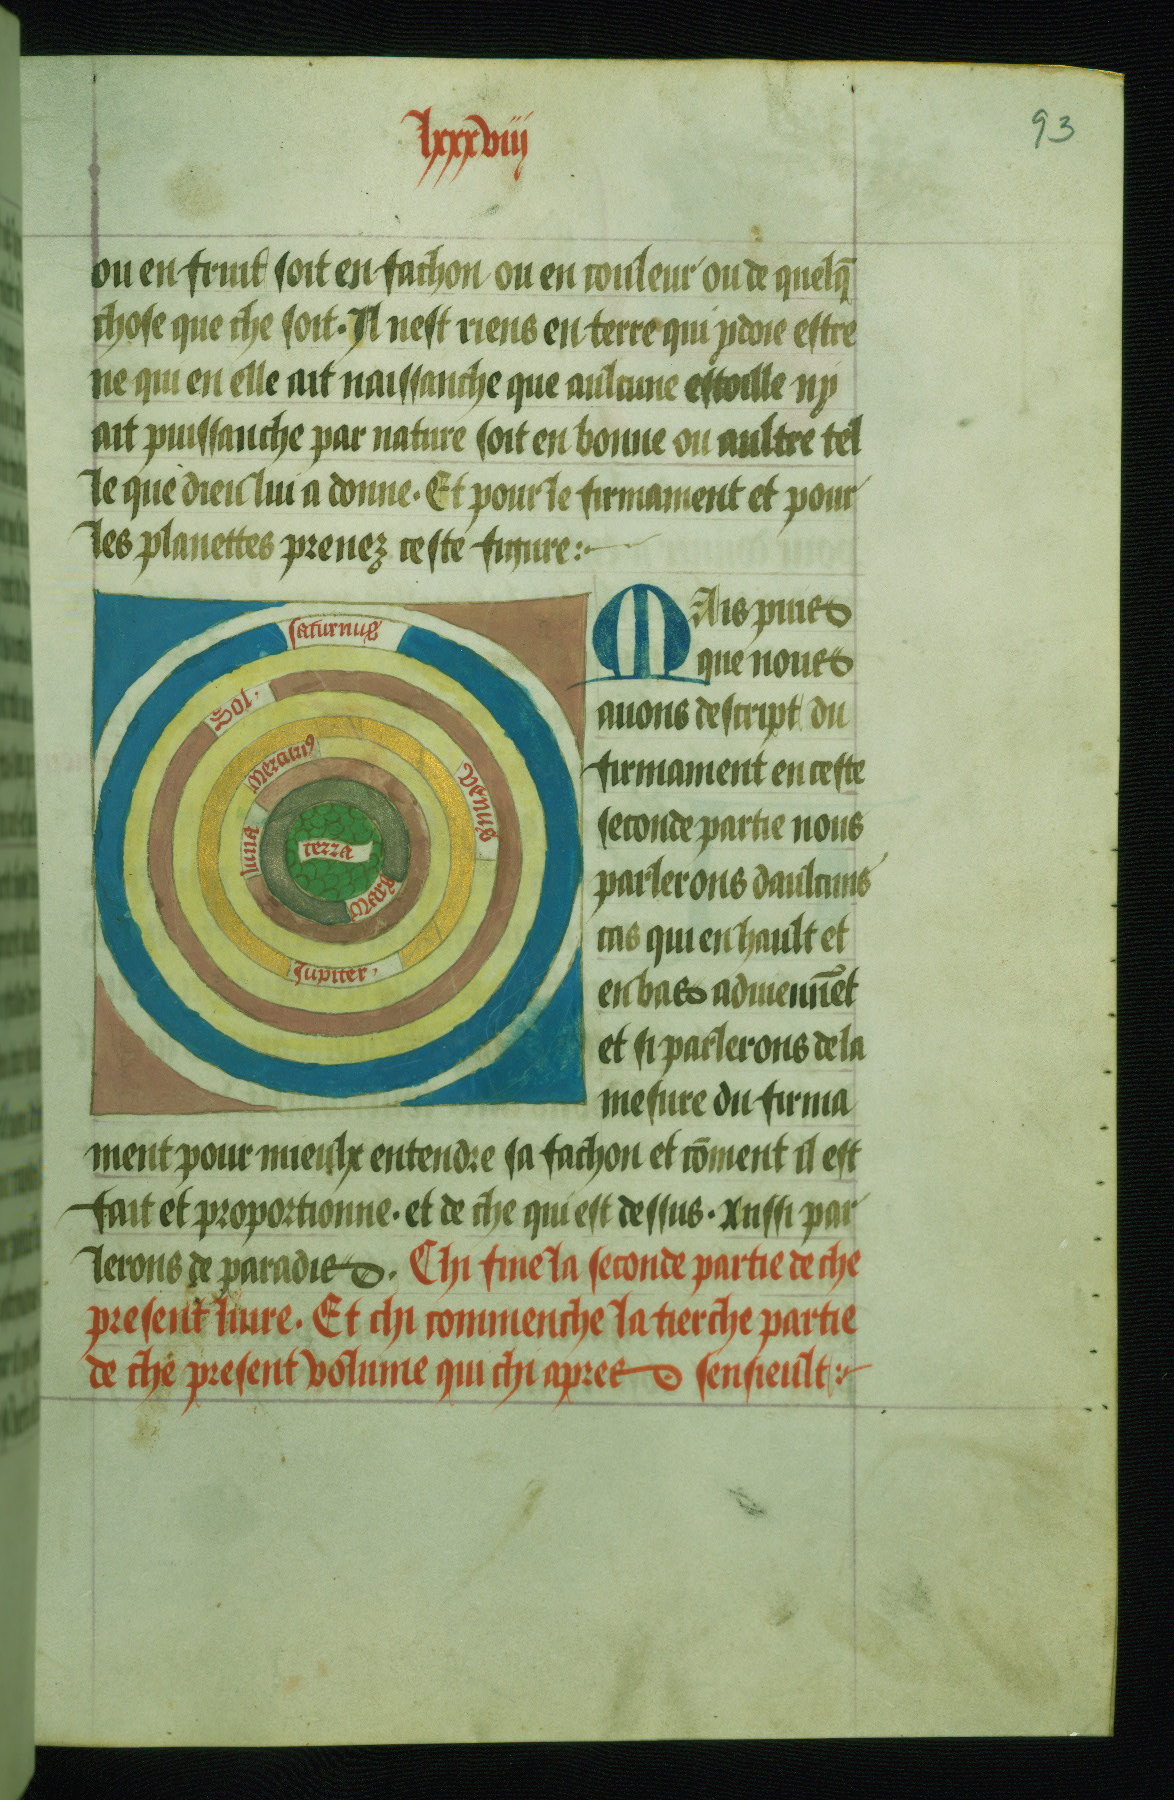 lxxxviij
93
ou en fruit soit en fachon ou en couleur ou de quelq̄
chose que che soit. Il nest riens en terre qui ꝑdoie estre
ne qui en elle ait naissanche que aulcune estoille ny
ait puissanche par nature soit en bonne ou aultre tel
le que dieu lui a donne. Et pour le firmament et pour
les planettes prenez ceste figure:~
saturnus
Sol.
Mercurius
Venus
luna
terra
Mars
Jupiter.
MAis pius
que nous
auons descript du
firmament en ceste
seconde partie nous
parlerons daulcuns
cas qui en hault et
en bas aduiennēt
et si parlerons de la
mesure du firma
ment pour mieulx entendre sa fachon et cōment il est
fait et proportionne. et de che qui est dessus. Aussi par
lerons de paradis. Chi fine la seconde partie de che
present liure. Et chi commenche la tierche partie
de che present volume qui chi apres sensieult:~